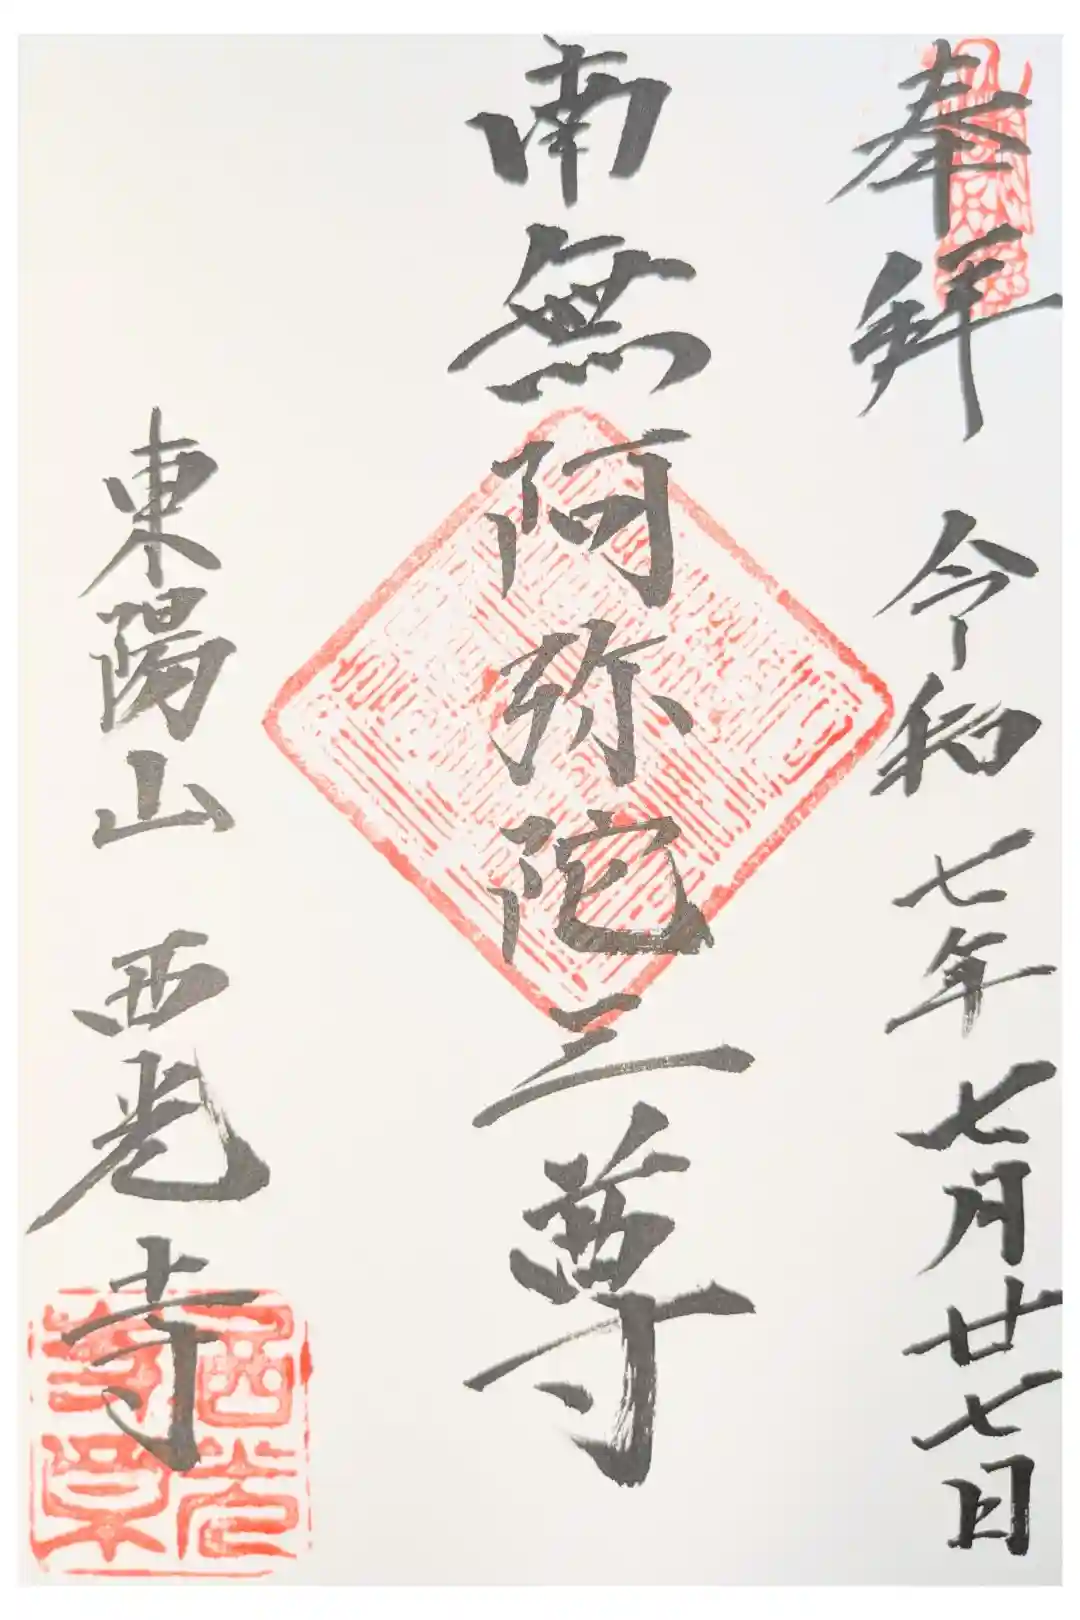 奉拝 令和七年七月廿七日
南無阿弥陀三尊
東陽山 西光寺